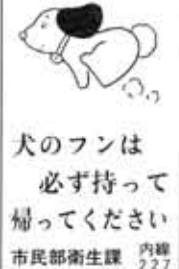 犬のフンは
必ず持って
帰ってください
市民部衛生課 内線
227